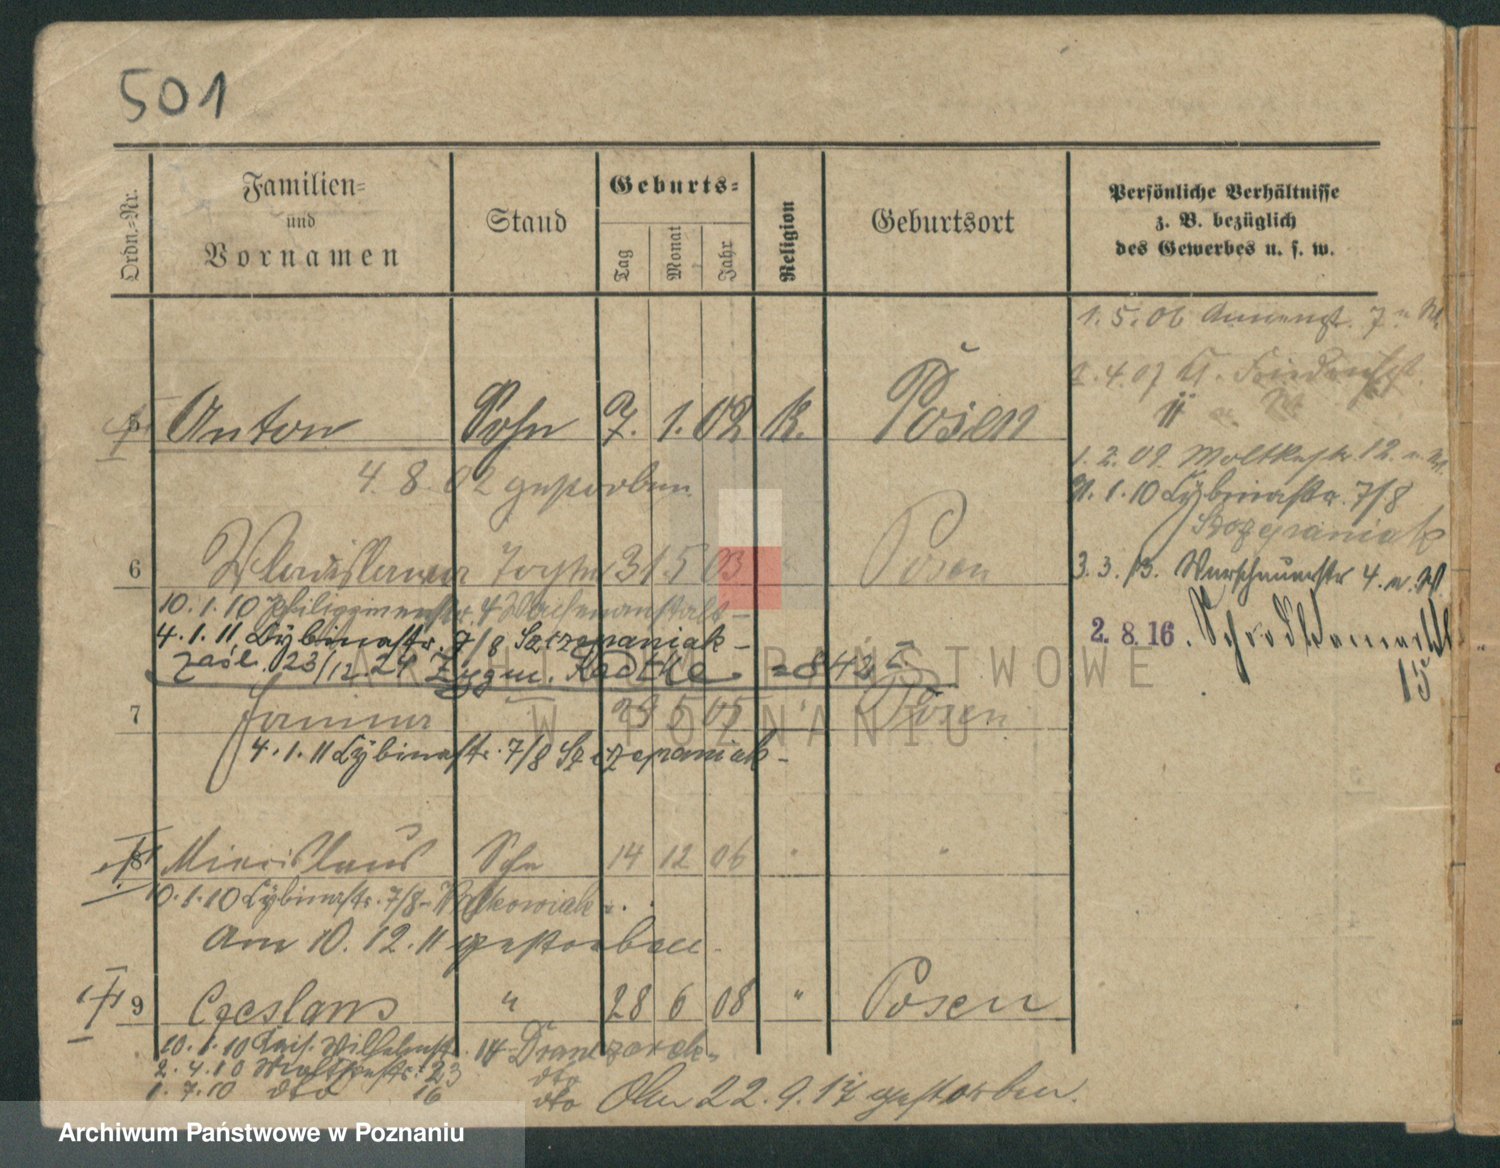 501
Ordn.=Nr.
Familien=
und
Vornamen
Stand
Geburts=
Tag
Monat
Jahr
Religion
Geburtsort
Persönliche Verhältnisse
z. B. bezüglich
des Gewerbes u. s. w.
1. 5. 06 7
1. 4. 07
5 Anton Sohn 7. 1. 02 K. Posen
1. 2. 09. Moltkestr. 12.
4. 8. 02 gestorben
1. 10 Lybinastr. 7/8
Szczepaniak
6 Wladislawa 31 5 03 " Posen
3. 3. 13. Warschauerstr 4.
10. 1. 10
4. 1. 11 Lybinastr. 7/8 Szczepaniak -
2. 8. 16.
15
zaśl. 23/12. 24 Zygm. Radtke
ARCHIWUM PAŃSTWOWE
W POZNANIU
7 Janina 5 05 " Posen
4. 1. 11 Lybinastr. 7/8 Szczepaniak -
8 Miecislaus Sohn 14 12 06 " "
10. 1. 10 Lybinastr. 7/8 -
Am 10. 12. 11 gestorben.
9 Czeslaus " 28 6 08 " Posen
10. 1. 10 Kais. Wilhelmstr. 14
2. 4. 10 Moltkestr. 23 dto
1. 7. 10 dto 16 dto 22. 9. 17 gestorben.
Archiwum Państwowe w Poznaniu